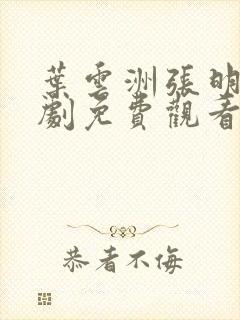 葉雲洲張明
劇免費觀看
恭者不侮